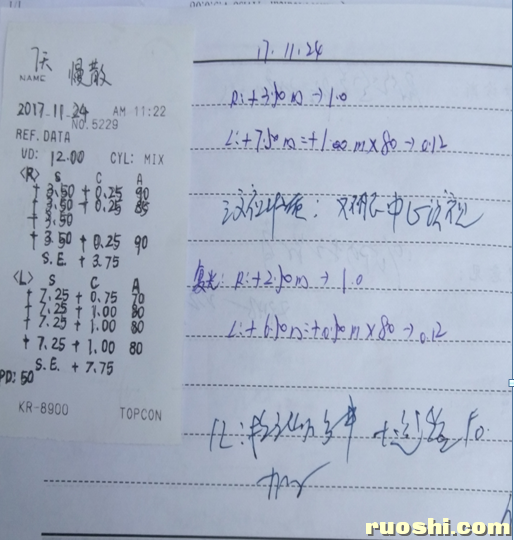 7天 慢散
NAME
2017.11.24 AM 11:22
NO.5229
REF. DATA
VD: 12.00 CYL: MIX
<R> S C A
+ 3.50 + 0.25 90
+ 3.50 + 0.25 85
+ 3.50
+ 3.50 + 0.25 90
S.E. + 3.75
<L> S C A
+ 7.25 + 0.75 70
+ 7.25 + 1.00 80
+ 7.25 + 1.00 80
+ 7.25 + 1.00 80
S.E. + 7.75
PD: 50
KR-8900 TOPCON
17.11.24
R: +3.50 → 1.0
L: +7.50 = +1.00 m×80 → 0.12
注视性质: 双眼 中心注视
复光: R: +2.50 → 1.0
L: +6.50 = +0.50 m×80 → 0.12
ruoshi.com